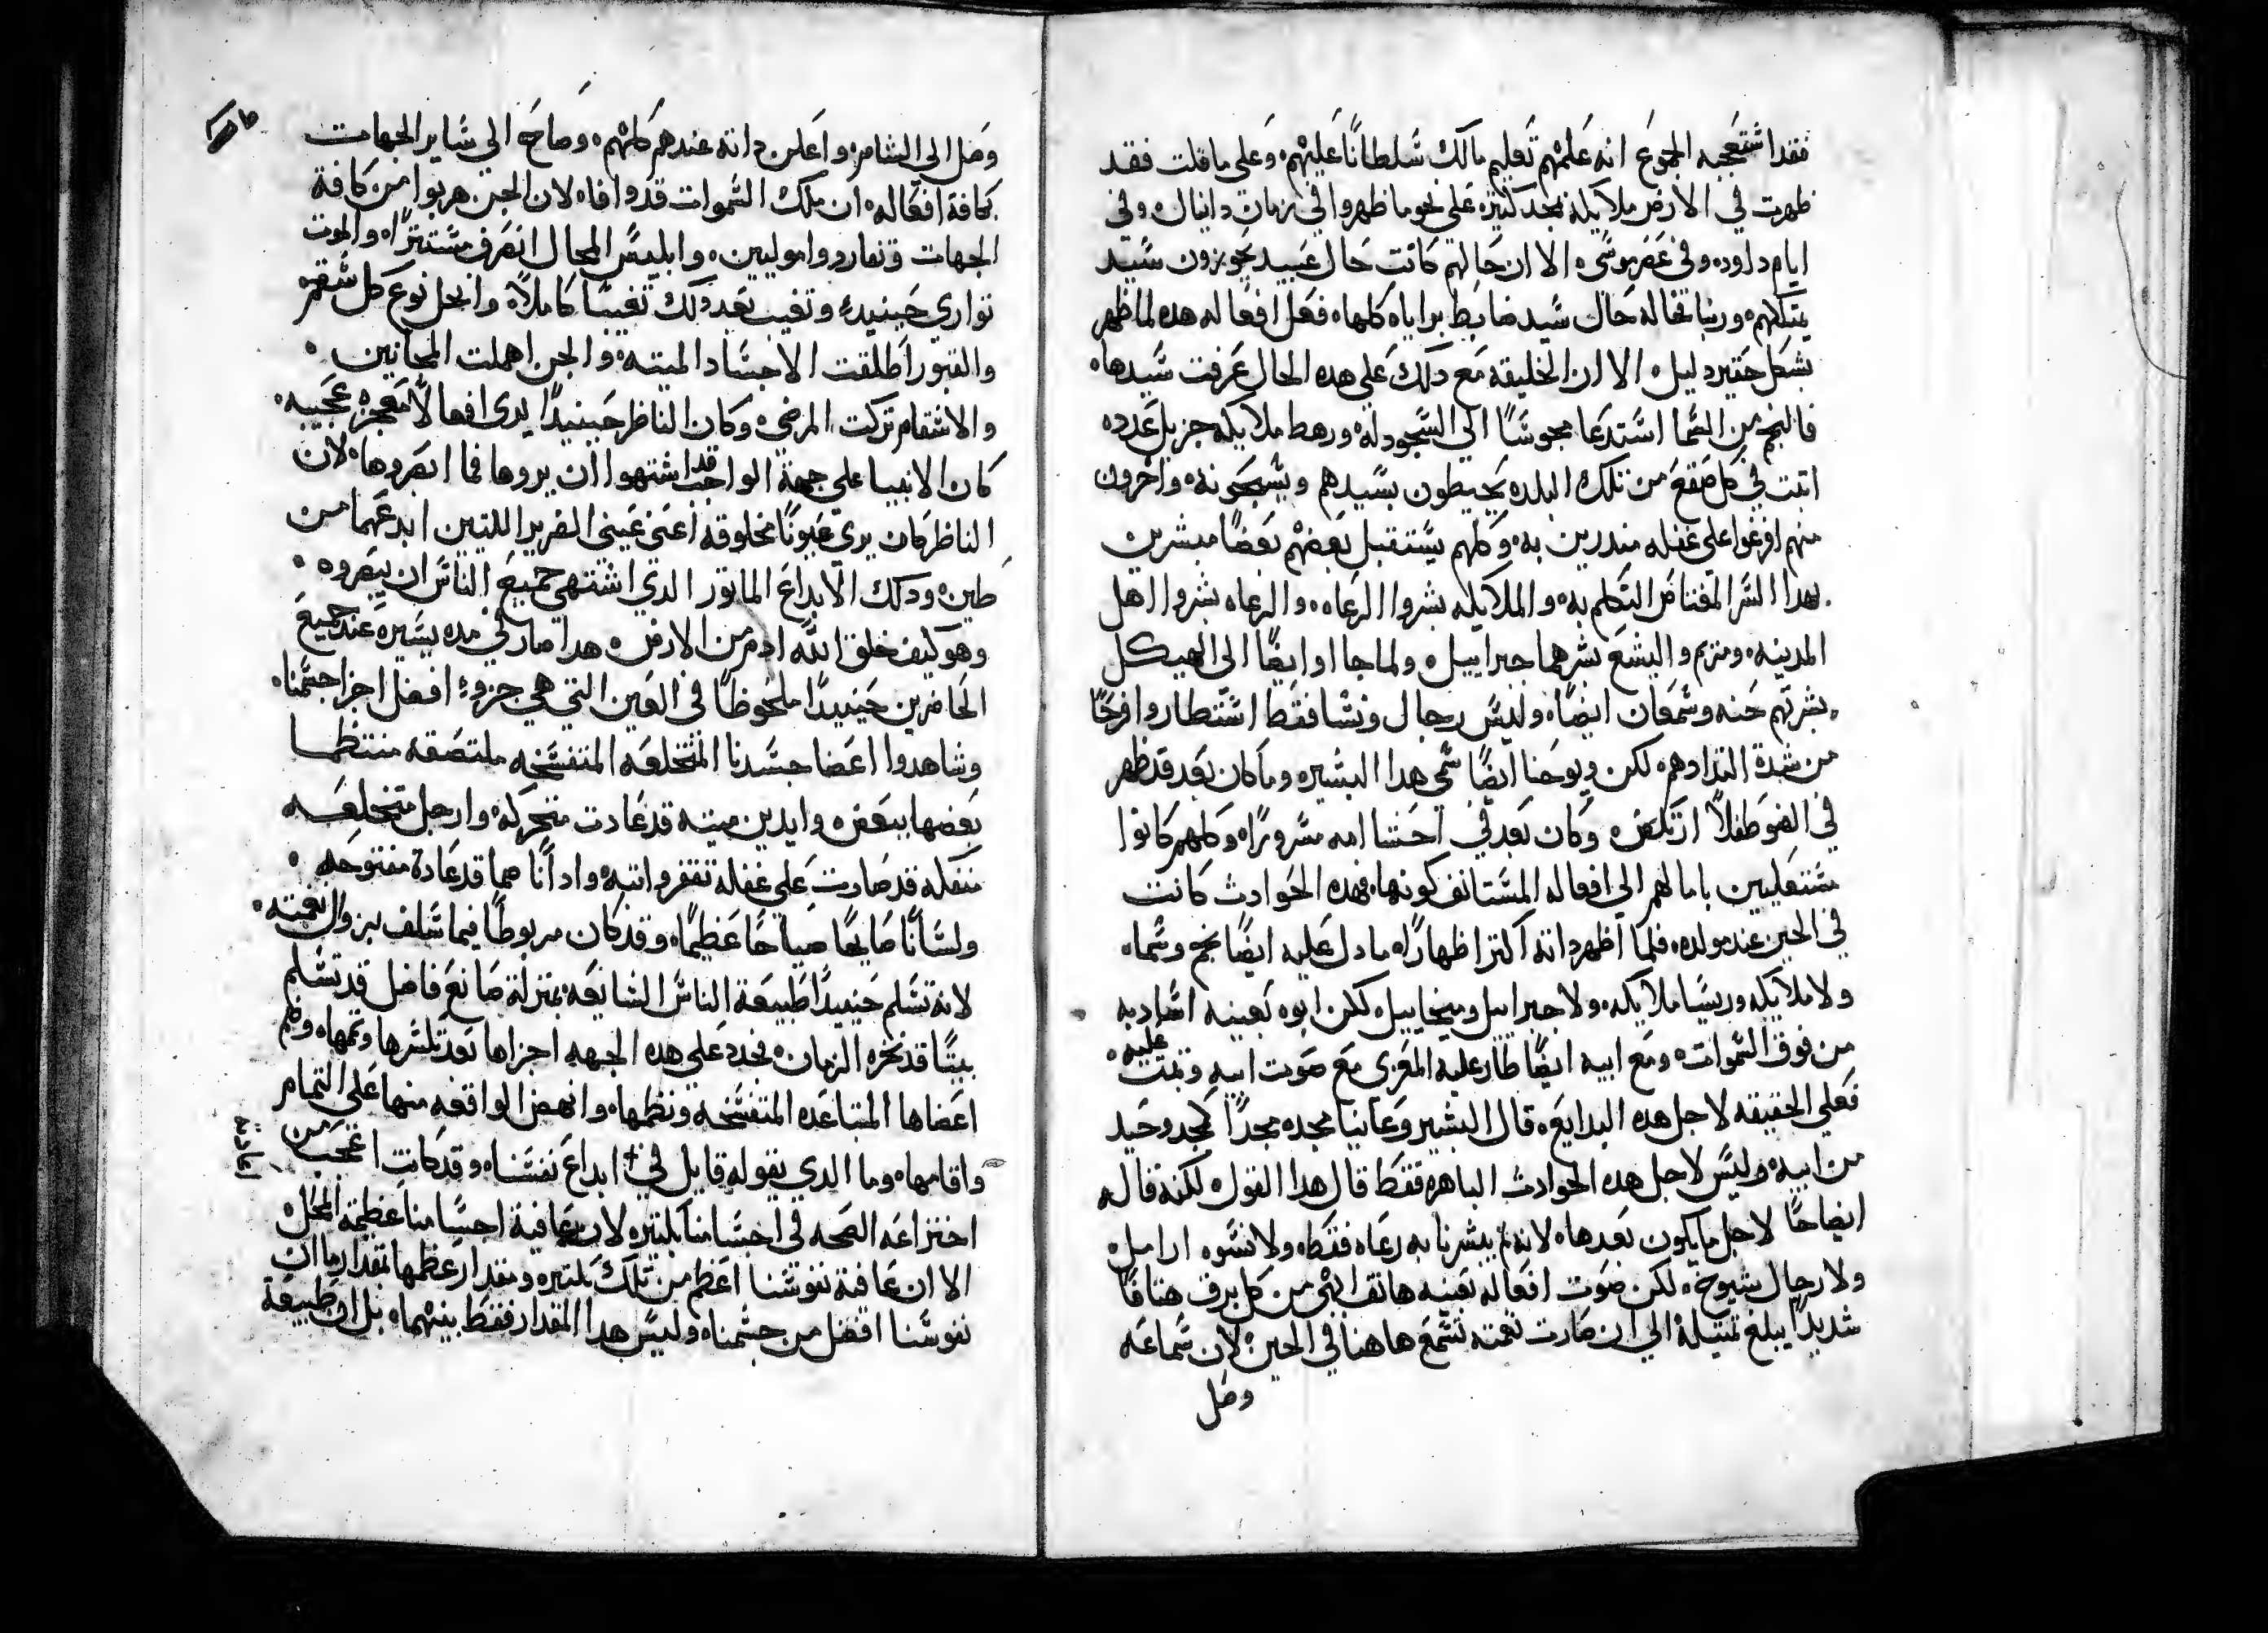 فقد اشتعجبه الجموع انه علمهم تعليم مالك شلطانًا عليهم، وعلى ما قلت فقد
ظهرت في الارض ملايكه بمجد كثيره على نحو ما ظهروا في زمان دانيال، وفي
ايام داوده وفي عصر موشى، الا ان حالهم كانت حال عبيد يحوزون شيد
يمتلكهم، وربنا فحاله حال شيد ضابط براياه كلها، فعل افعاله هده لما ظهر
بشكل حقير دليل، الا ان الخليقه مع دلك على هده الحال عرفت شيدها،
فالنجم من الشما اشتدعا مجوشًا الى الشجود له، ورهط ملايكه جزيل عدده
اتت في كل صقع من تلك البلده يحيطون بشيدهم ويشبحونه، واخرون
منهم افرغوا على غفله مندرين به، وكلهم يشتقبل بعضهم بعضًا مبشرين
بهدا الشر المفتاض التكلم به، والملايكه بشروا الرعاه، والرعاه بشروا اهل
المدينه، ومريم واليشع بشرهما جبراييل، ولما جا اوايضًا الى الهيكل
بشرتهم حنه وشمعان ايضًا، وليش رجال ونشا فقط اشتطاروا فرحًا
من شدة التدادهم، لكن ويوحنا ايضًا شمى هدا البشيره وما كان بعد قد ظهر
في الضو طفلاً ارتكض، وكان بعد في احشا امه مشرورًا، وكلهم كانوا
مشتعليين بامالهم الى افعاله المشتانف كونها، فهده الحوادث كانت
في الحين عند مولده، فلما اظهر داته اكتر اظهارًا، ما دل عليه ايضًا نجم وشما،
ولا ملايكه وريشا ملايكه، ولا جبراييل وميخاييل، لكن ابوه بعينه اشاد به
من فوق الشموات، ومع ابيه ايضًا طار عليه المعزى مع صوت ابيه وتمت عليه،
فعلى الحقيقه لاجل هده البدايع، قال البشير وعاينا مجده مجدًا كمجد وحيد
من ابيه، وليش لاجل هده الحوادث الباهره فقط قال هدا القول، لكنه قاله
ايضاحًا لاجل ما يكون بعدها، لانه لم يبشرنا به رعاه فقط، ولا نشوه ارامل،
ولا رجال شيوخ، لكن صوت افعاله بعينه هاتف ابهى من كل برق هتافًا
شديدًا يبلغ تمتيله الى ان صارت نغمته تشمع هاهنا في الحين، لان شماعه
وصل
وصل الى الشام، واعلن داته عندهم كلهم، وصاح الى شاير الجهات
بكافة افعاله، ان ملك الشموات قد وافا، لان الجن هربوا من كافة
الجهات وتفاردوا موليين، وابليش المحال انصرف مشتترًا، والموت
توارى حينيد، وتغيب بعد دلك تغيبًا كاملاً، وانحل نوع كل شقم
والقبور اطلقت الاجشاد الميته، والجن اهملت المجانين،
والاشقام تركت المرضى، وكان الناظر حينيدًا يرى افعالاً معجزه عجيبه،
كان الانبيا على جهة الواجب قد اشتهوا ان يروها فما ابصروها، لان
الناظر كان يرى عيونًا مخلوقه اعنى عينى الضرير اللتين ابدعهما من
طين، ودلك الابداع الماتور الدي اشتهى جميع الناش ان يبصروه،
وهو كيف خلق الله ادم من الارض، هدا صار في مده يشيره عند جميع
الحاضرين حينيدًا ملحوظًا في العين التي هي جزوء افضل اجزا جشمنا،
وشاهدوا اعضا جشدنا المتخلعه المتفشخه ملتصقه منتظما
بعضها ببعض، وايدين ميته قد عادت متحركه، وارجل متخلعه
متفكله قد صارت على غفله تقفز واتبه، وادانًا صما قد عادة مفتوحه،
ولشانًا صايحًا صياحًا عظيمًا، وقد كان مربوطًا فيما شلف بزوال نغمته،
لانه تشلم حينيدًا طبيعة الناش الشايعه بمنزلة صانع فاضل قد تشلم
بيتًا قد نخره الزمان، فجدد على هده الجهه اجزاها بعد تلشرها وتمها، وضم
اعضاها المتباعده المتفشخه ونظمها، وانهض الواقعه منها على التمام
واقامها، وما الدي يقوله قايل في ابداع نفشنا، وقد كانت اعجب من
اعادته
اختراعه الصحه في اجشامنا بكتير، لان عافية اجشامنا عظيمة المحل،
الا ان عافية نفوشنا اعظم من تلك بكتير، ومقدار عظمها بمقدار ما ان
نفوشنا افضل من جشمنا، وليش هدا المقدار فقط بينهما، بل ان طبيعة